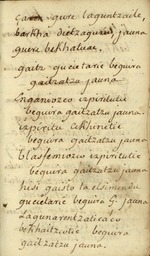 gure laguntzaile,
barkha diezaguzu, jauna
gure bekhatuac.
gaitz gucietaric beguira
gaitzatzu jauna
enganiozco izpiritutic
beguira gaitzatzu jauna.
izpiritu
beguira gaitzatzu jauna
blasfemiozco izpiritutic
beguira gaitzatzu jauna
gaisto
gucietaric beguira g. jauna
bekhaitzetic beguira
gaitzatzu jauna.